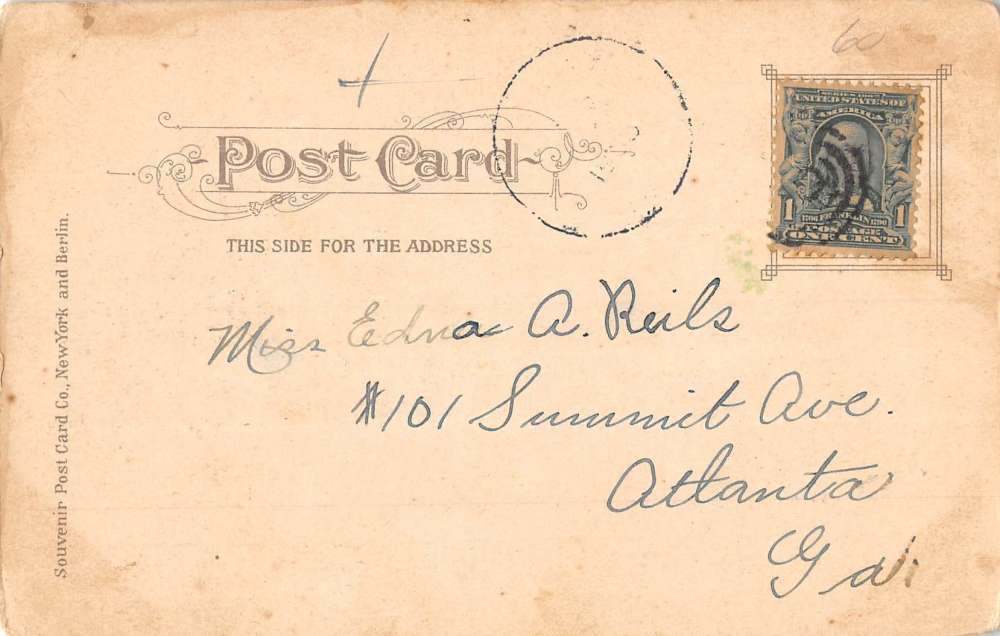 60
Post Card
THIS SIDE FOR THE ADDRESS
SERIES 1902
UNITED STATES OF
AMERICA
1 1790 FRANKLIN 1790 1
POSTAGE
ONE CENT
Miss Edna A. Reils
#101 Summit Ave.
Atlanta
Ga.
Souvenir Post Card Co., New York and Berlin.